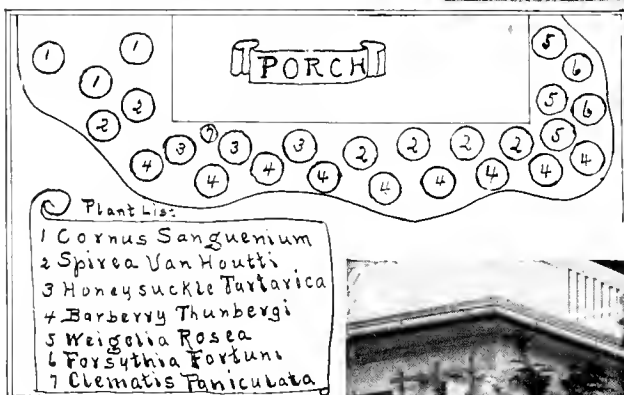 1 1 PORCH 5
1 6
2 5 6
2 7 5
3 3 3 2 2 2 2
4 4 4 4 4 4 4 4 4
Plant List
1 Cornus Sanguenium
2 Spirea Van Houtti
3 Honeysuckle Tartarica
4 Barberry Thunbergi
5 Weigelia Rosea
6 Forsythia Fortuni
7 Clematis Paniculata